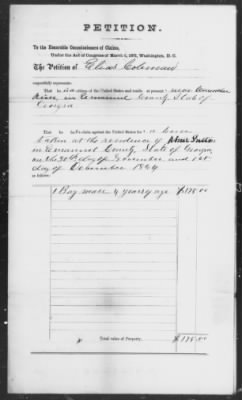 PETITION.
To the Honorable Commissioners of Claims,
Under the Act of Congress of March 3, 1871, Washington, D. C.
The Petition of Elias Coleman
respectfully represents:
That he is citizen of the United States and reside at present near Cannuchee
River in Emanuel County State of
Georgia
That he has claim against the United States for a horse
taken at the residence of
in Emanuel County, State of Georgia,
on the 30th day of November and 1st
day of December 1864
as follows:
1 Bay mare 4 years of age $175.00
Total value of Property, $175.00